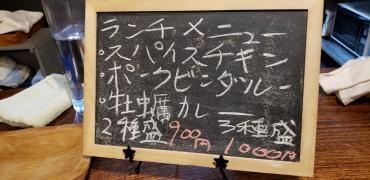 ランチメニュー
・スパイスチキン
・ポークビンダルー
・牡蠣カレー
2種盛900円 3種盛1000円